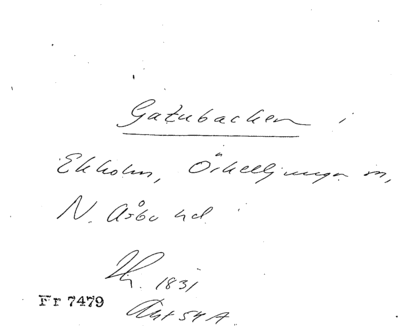 Gatubacken i
Ekholm, Örkelljunga sn,
N. Åsbo hd.
1831
Fr 7479
Akt 54 A